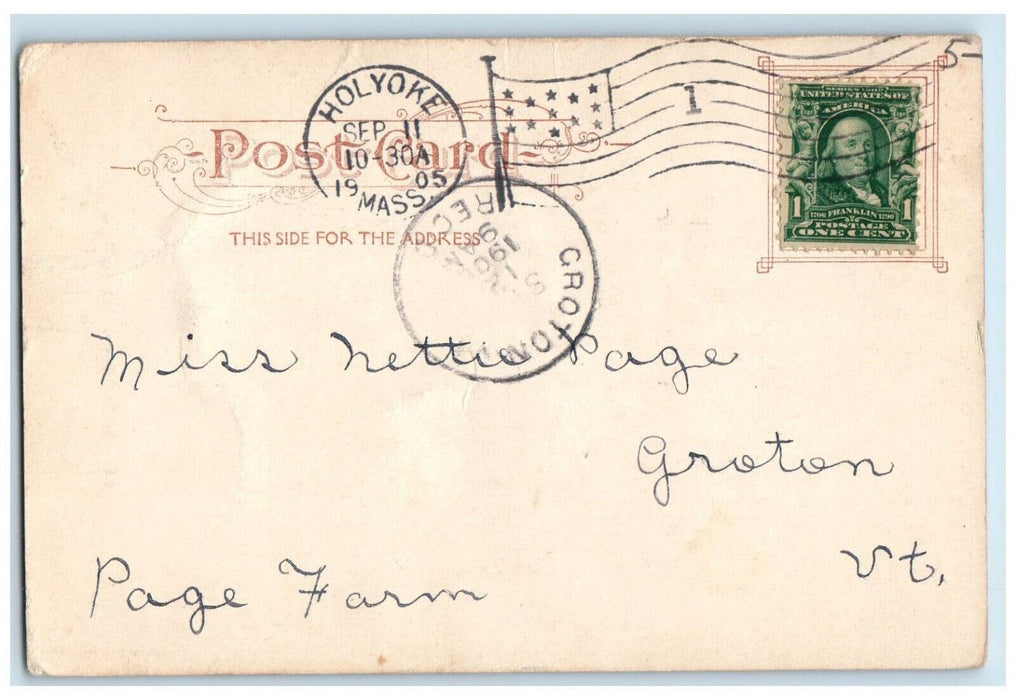 5-
HOLYOKE
SEP 11
10-30A
1905
MASS.
1
SERIES 1902
UNITED STATES OF
AMERICA
1 1706 FRANKLIN 1790 1
POSTAGE
ONE CENT
Post Card
THIS SIDE FOR THE ADDRESS
GROTON
REC'D
Miss Nettie Page
Groton
Vt.
Page Farm